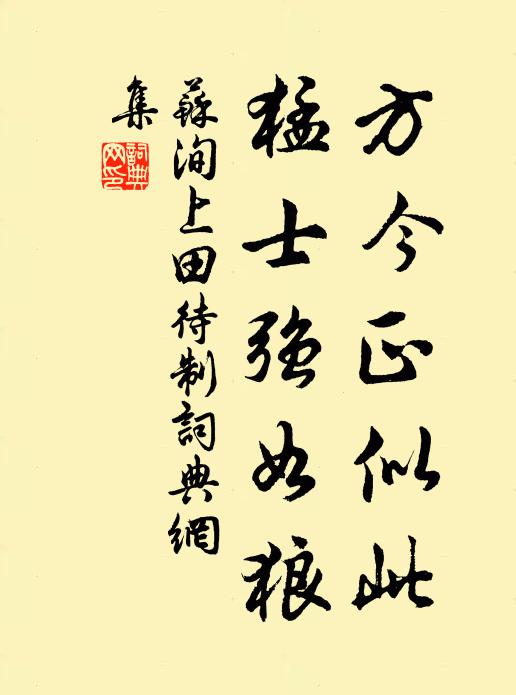 方今正似此
猛士強如狼
蘇洵上田待制詞典網
集
詞典網印